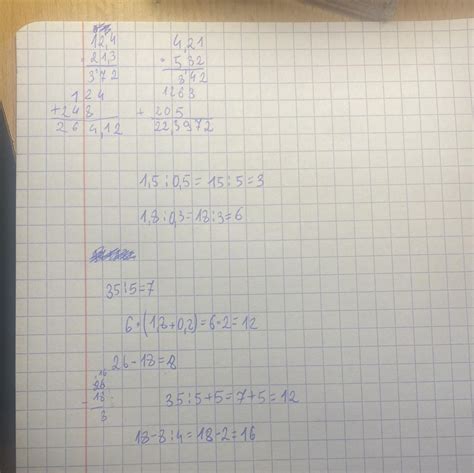 12,4
· 21,3
372
124
+248
264,12
4,21
· 532
842
1263
+ 205
22,3972
1,5:0,5=15:5=3
1,8:0,3=18:3=6
35:5=7
6·(1,8+0,2)=6·2=12
26-18=8
26
18
35:5+5=7+5=12
18-8:4=18-2=16